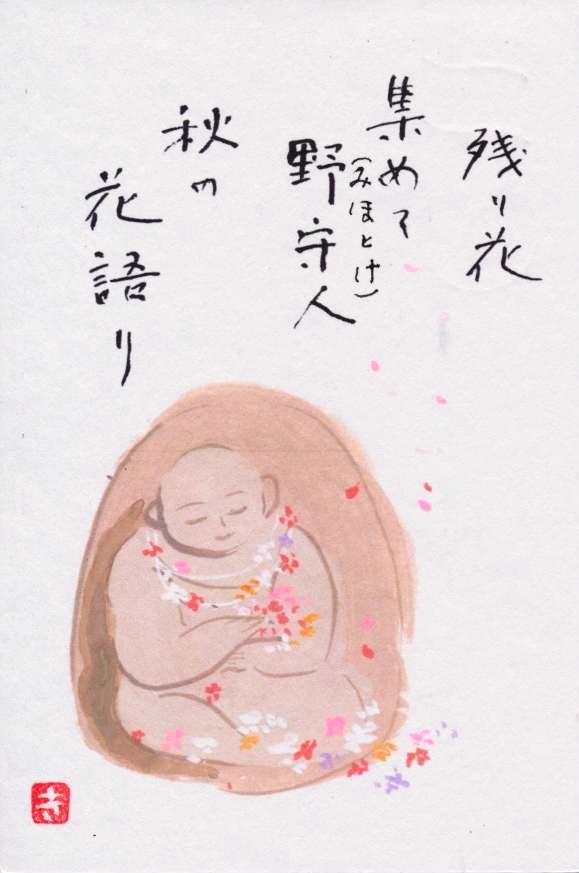 残り花
集めて
野守人
(みほとけ)
秋の
花語り
寺